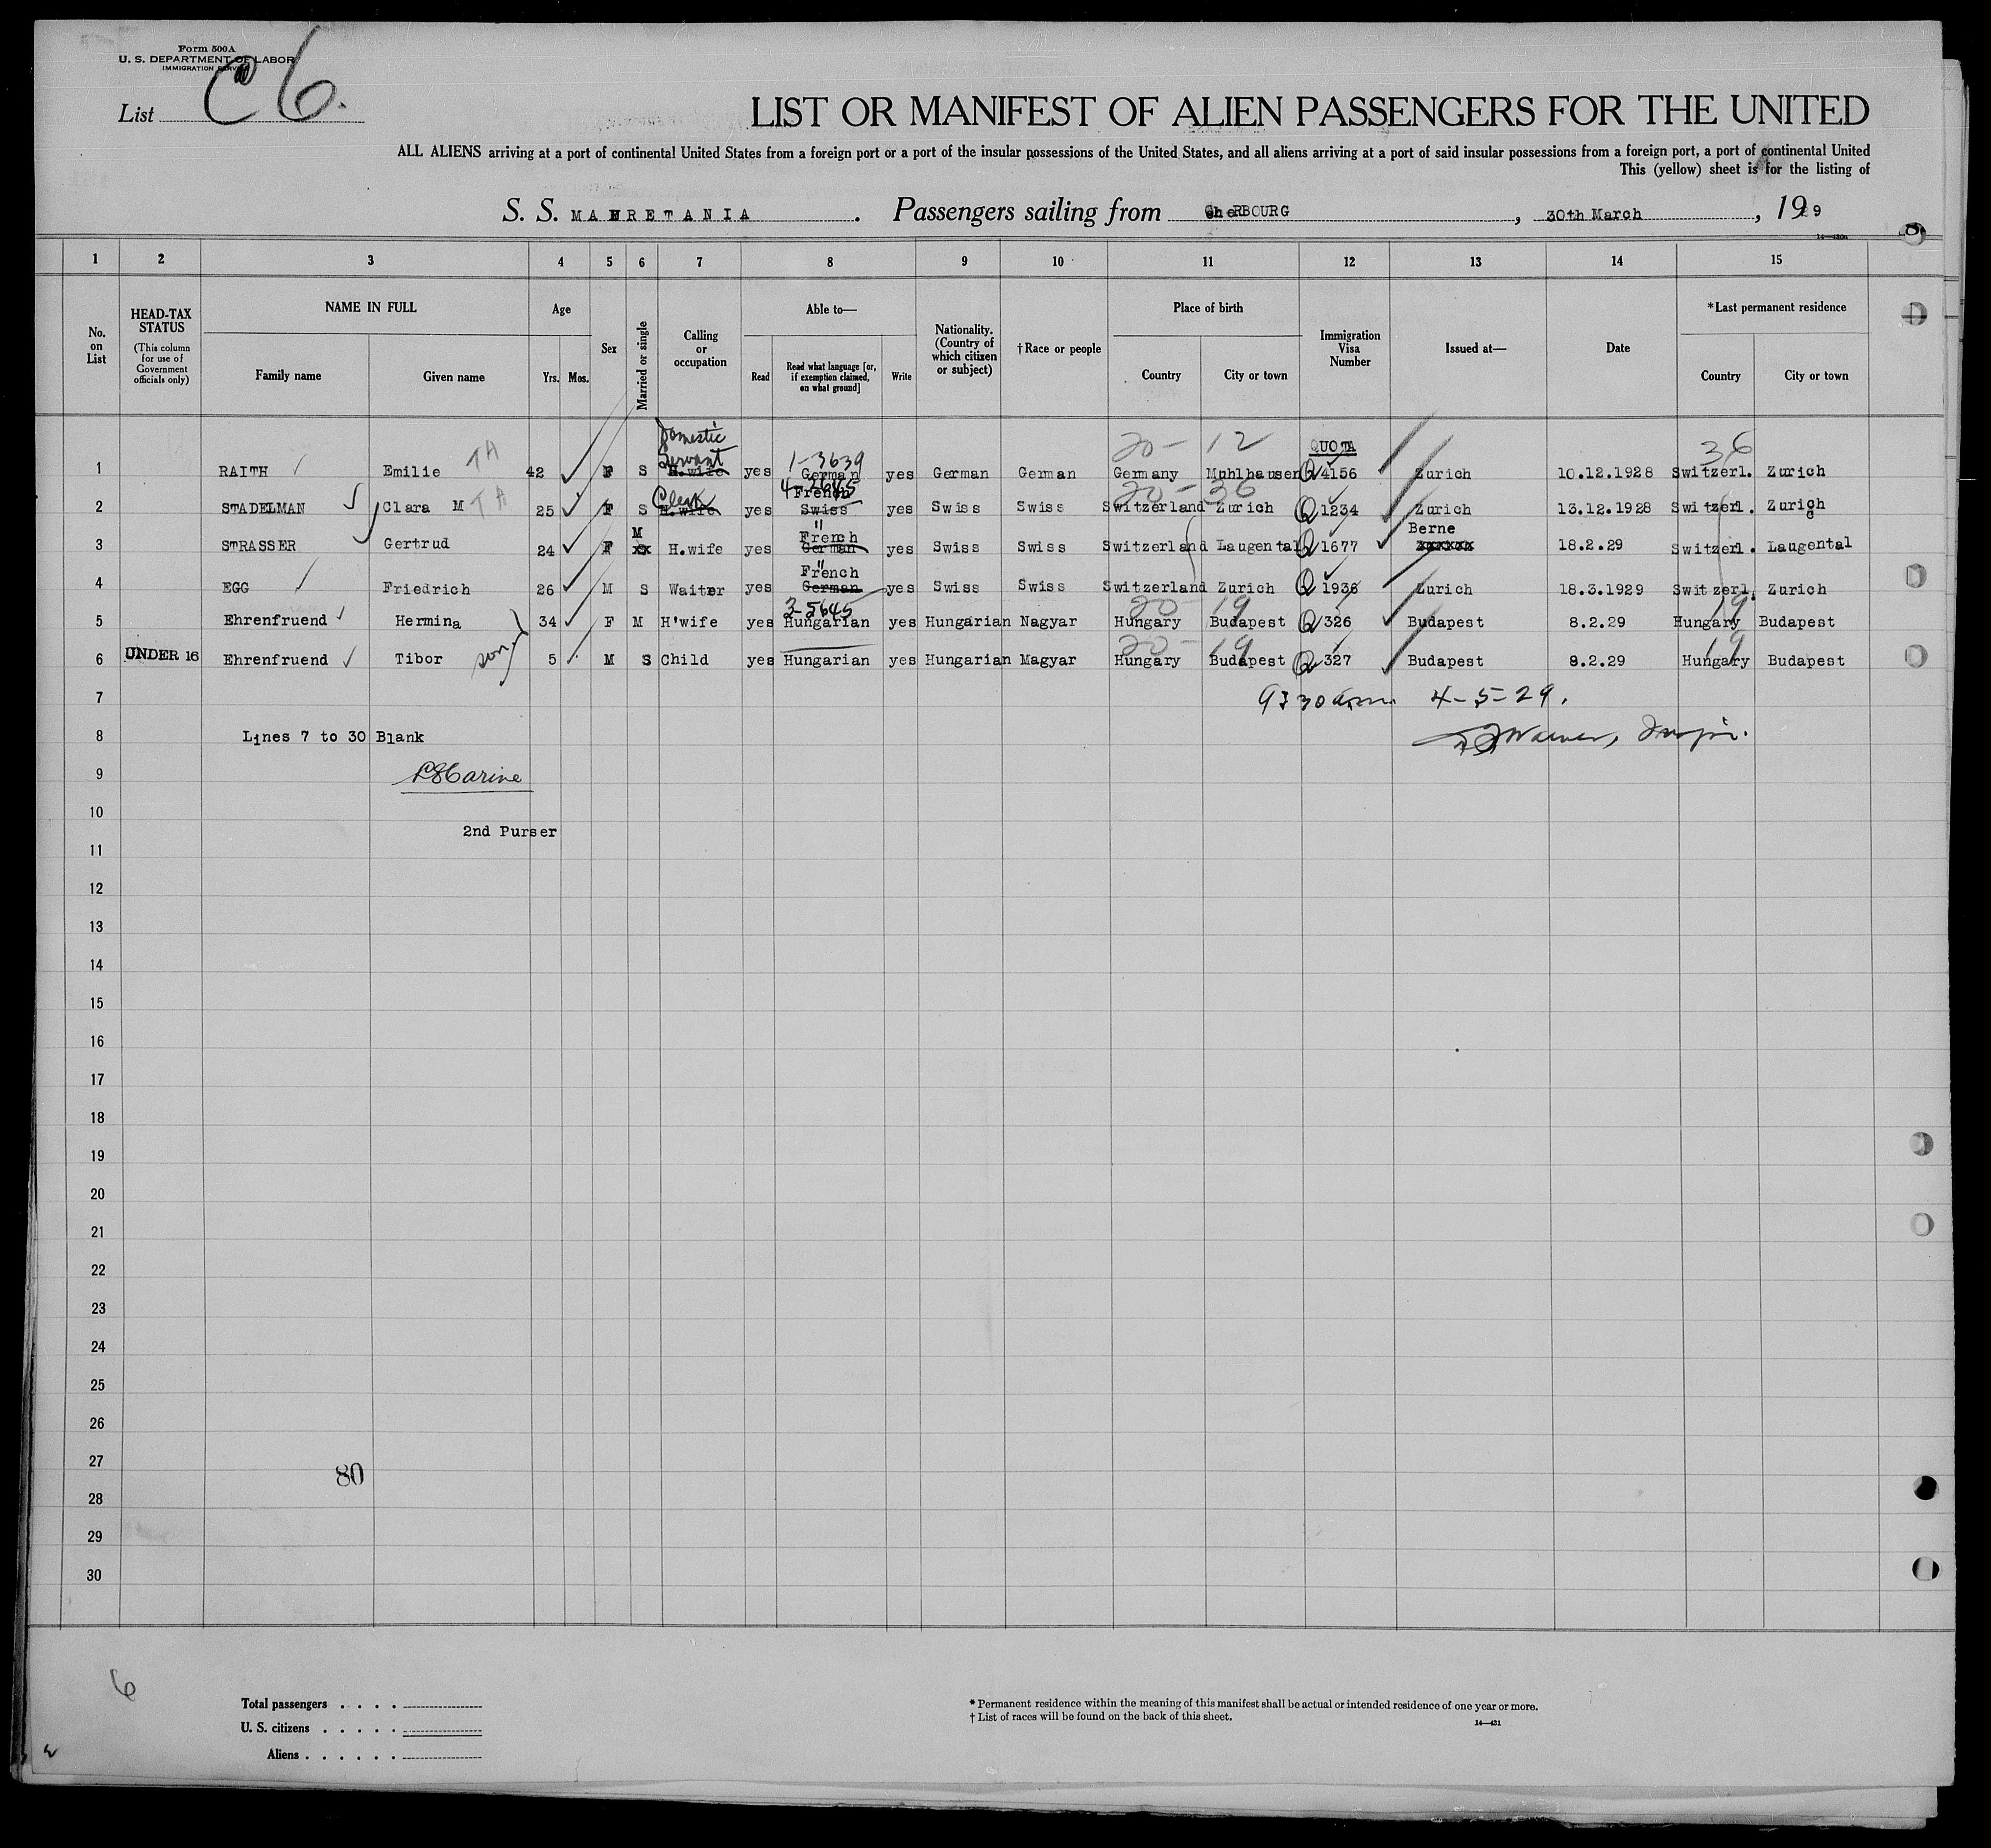 Form 500A
U. S. DEPARTMENT OF LABOR
IMMIGRATION SERVICE
List C 6.
LIST OR MANIFEST OF ALIEN PASSENGERS FOR THE UNITED
ALL ALIENS arriving at a port of continental United States from a foreign port or a port of the insular possessions of the United States, and all aliens arriving at a port of said insular possessions from a foreign port, a port of continental United
This (yellow) sheet is for the listing of
S. S. MAURETANIA . Passengers sailing from CheRBOURG , 30th March , 1929
14—430a
1 2 3 4 5 6 7 8 9 10 11 12 13 14 15
No. on List
HEAD-TAX STATUS
(This column for use of Government officials only)
NAME IN FULL
Family name Given name
Age
Yrs. Mos.
Sex
Married or single
Calling or occupation
Able to—
Read
Read what language [or, if exemption claimed, on what ground]
Write
Nationality. (Country of which citizen or subject)
†Race or people
Place of birth
Country City or town
Immigration Visa Number
Issued at—
Date
*Last permanent residence
Country City or town
Domestic 20- 12 QUOTA 36
Servant 1-3639
1 RAITH Emilie TA 42 F S H.wife yes German yes German German Germany Muhlhausen Q 4156 Zurich 10.12.1928 Switzerl. Zurich
Clerk 4-2645 French 20- 36
2 STADELMAN Clara M TA 25 F S H.wife yes Swiss yes Swiss Swiss Switzerland Zurich Q 1234 Zurich 13.12.1928 Switzerl. Zurich
M " French Berne
3 STRASSER Gertrud 24 F xx H.wife yes German yes Swiss Swiss Switzerland Laugental Q 1677 xxxxxx 18.2.29 Switzerl. Laugental
" French
4 EGG Friedrich 26 M S Waiter yes German yes Swiss Swiss Switzerland Zurich Q 1936 Zurich 18.3.1929 Switzerl. Zurich
3-5645 20- 19 19
5 Ehrenfruend Hermina 34 F M H'wife yes Hungarian yes Hungarian Nagyar Hungary Budapest Q 326 Budapest 8.2.29 Hungary Budapest
20- 19 19
6 UNDER 16 Ehrenfruend Tibor son 5 M S Child yes Hungarian yes Hungarian Magyar Hungary Budapest Q 327 Budapest 8.2.29 Hungary Budapest
7 9 30 am 4-5-29.
8 Lines 7 to 30 Blank
9
10
2nd Purser
11
12
13
14
15
16
17
18
19
20
21
22
23
24
25
26
27
80
28
29
30
6
Total passengers . . . .
U. S. citizens . . . . .
Aliens . . . . . .
* Permanent residence within the meaning of this manifest shall be actual or intended residence of one year or more.
† List of races will be found on the back of this sheet.
14—431